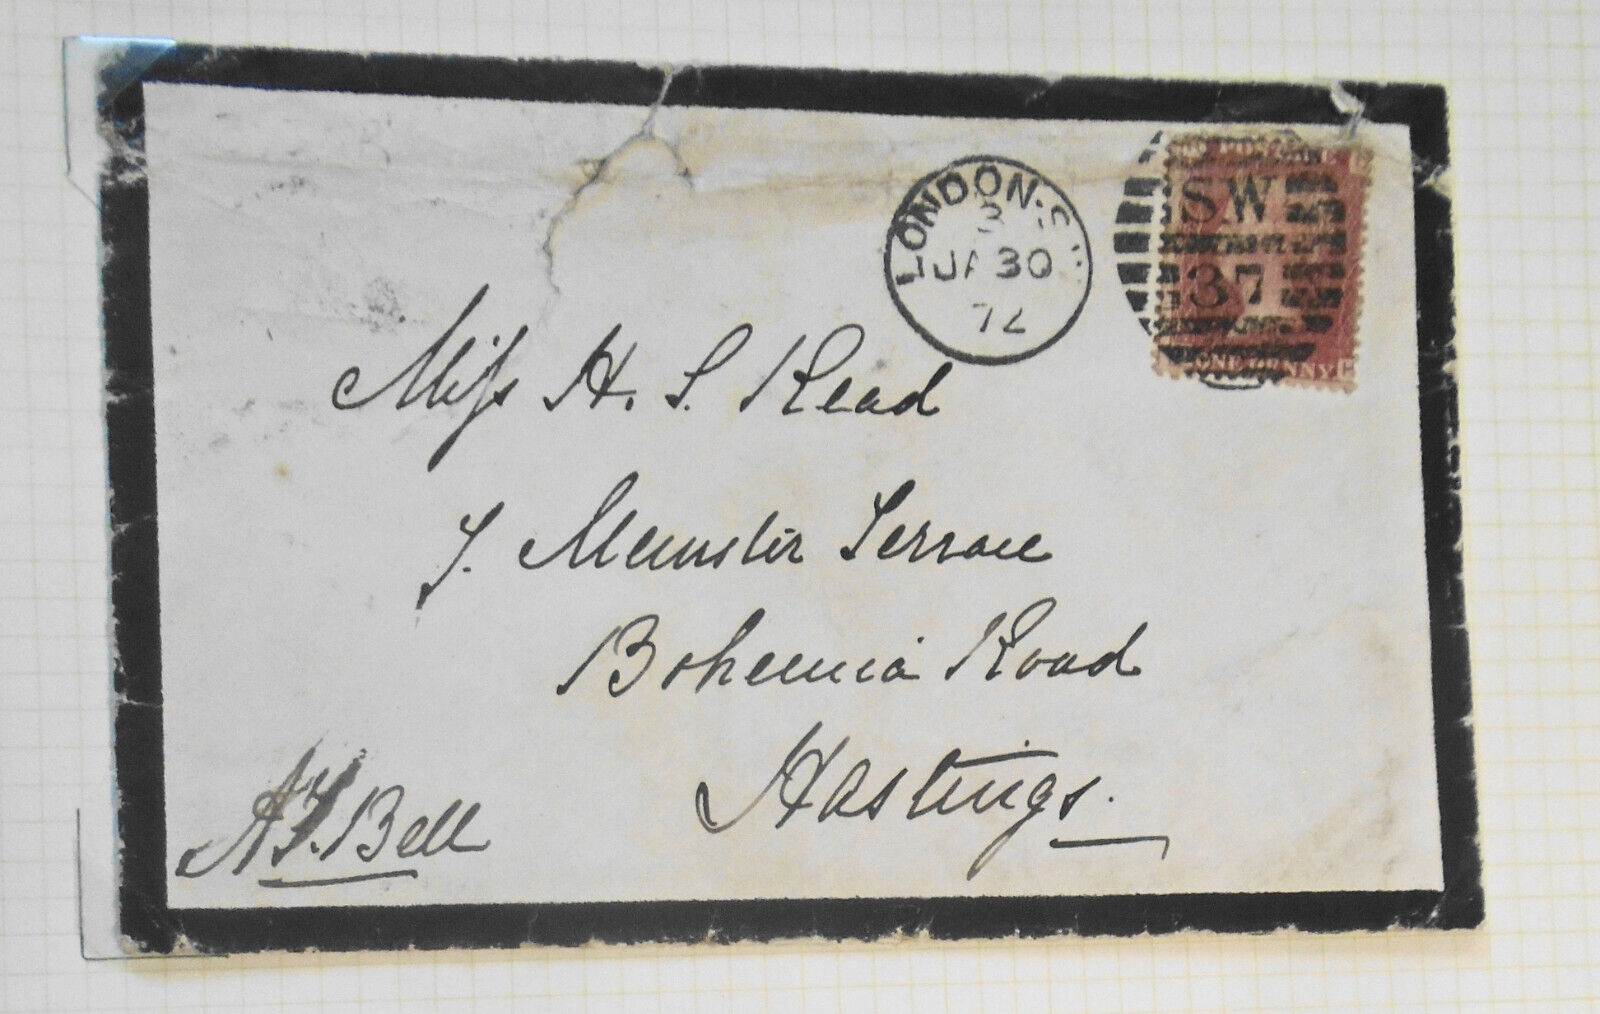 LONDON·S
3
JA 30
72
POSTAGE
SW
37
ONE PENNY
Miss H. S. Read
Munster Terrace
Bohemia Road
Hastings.
Bell